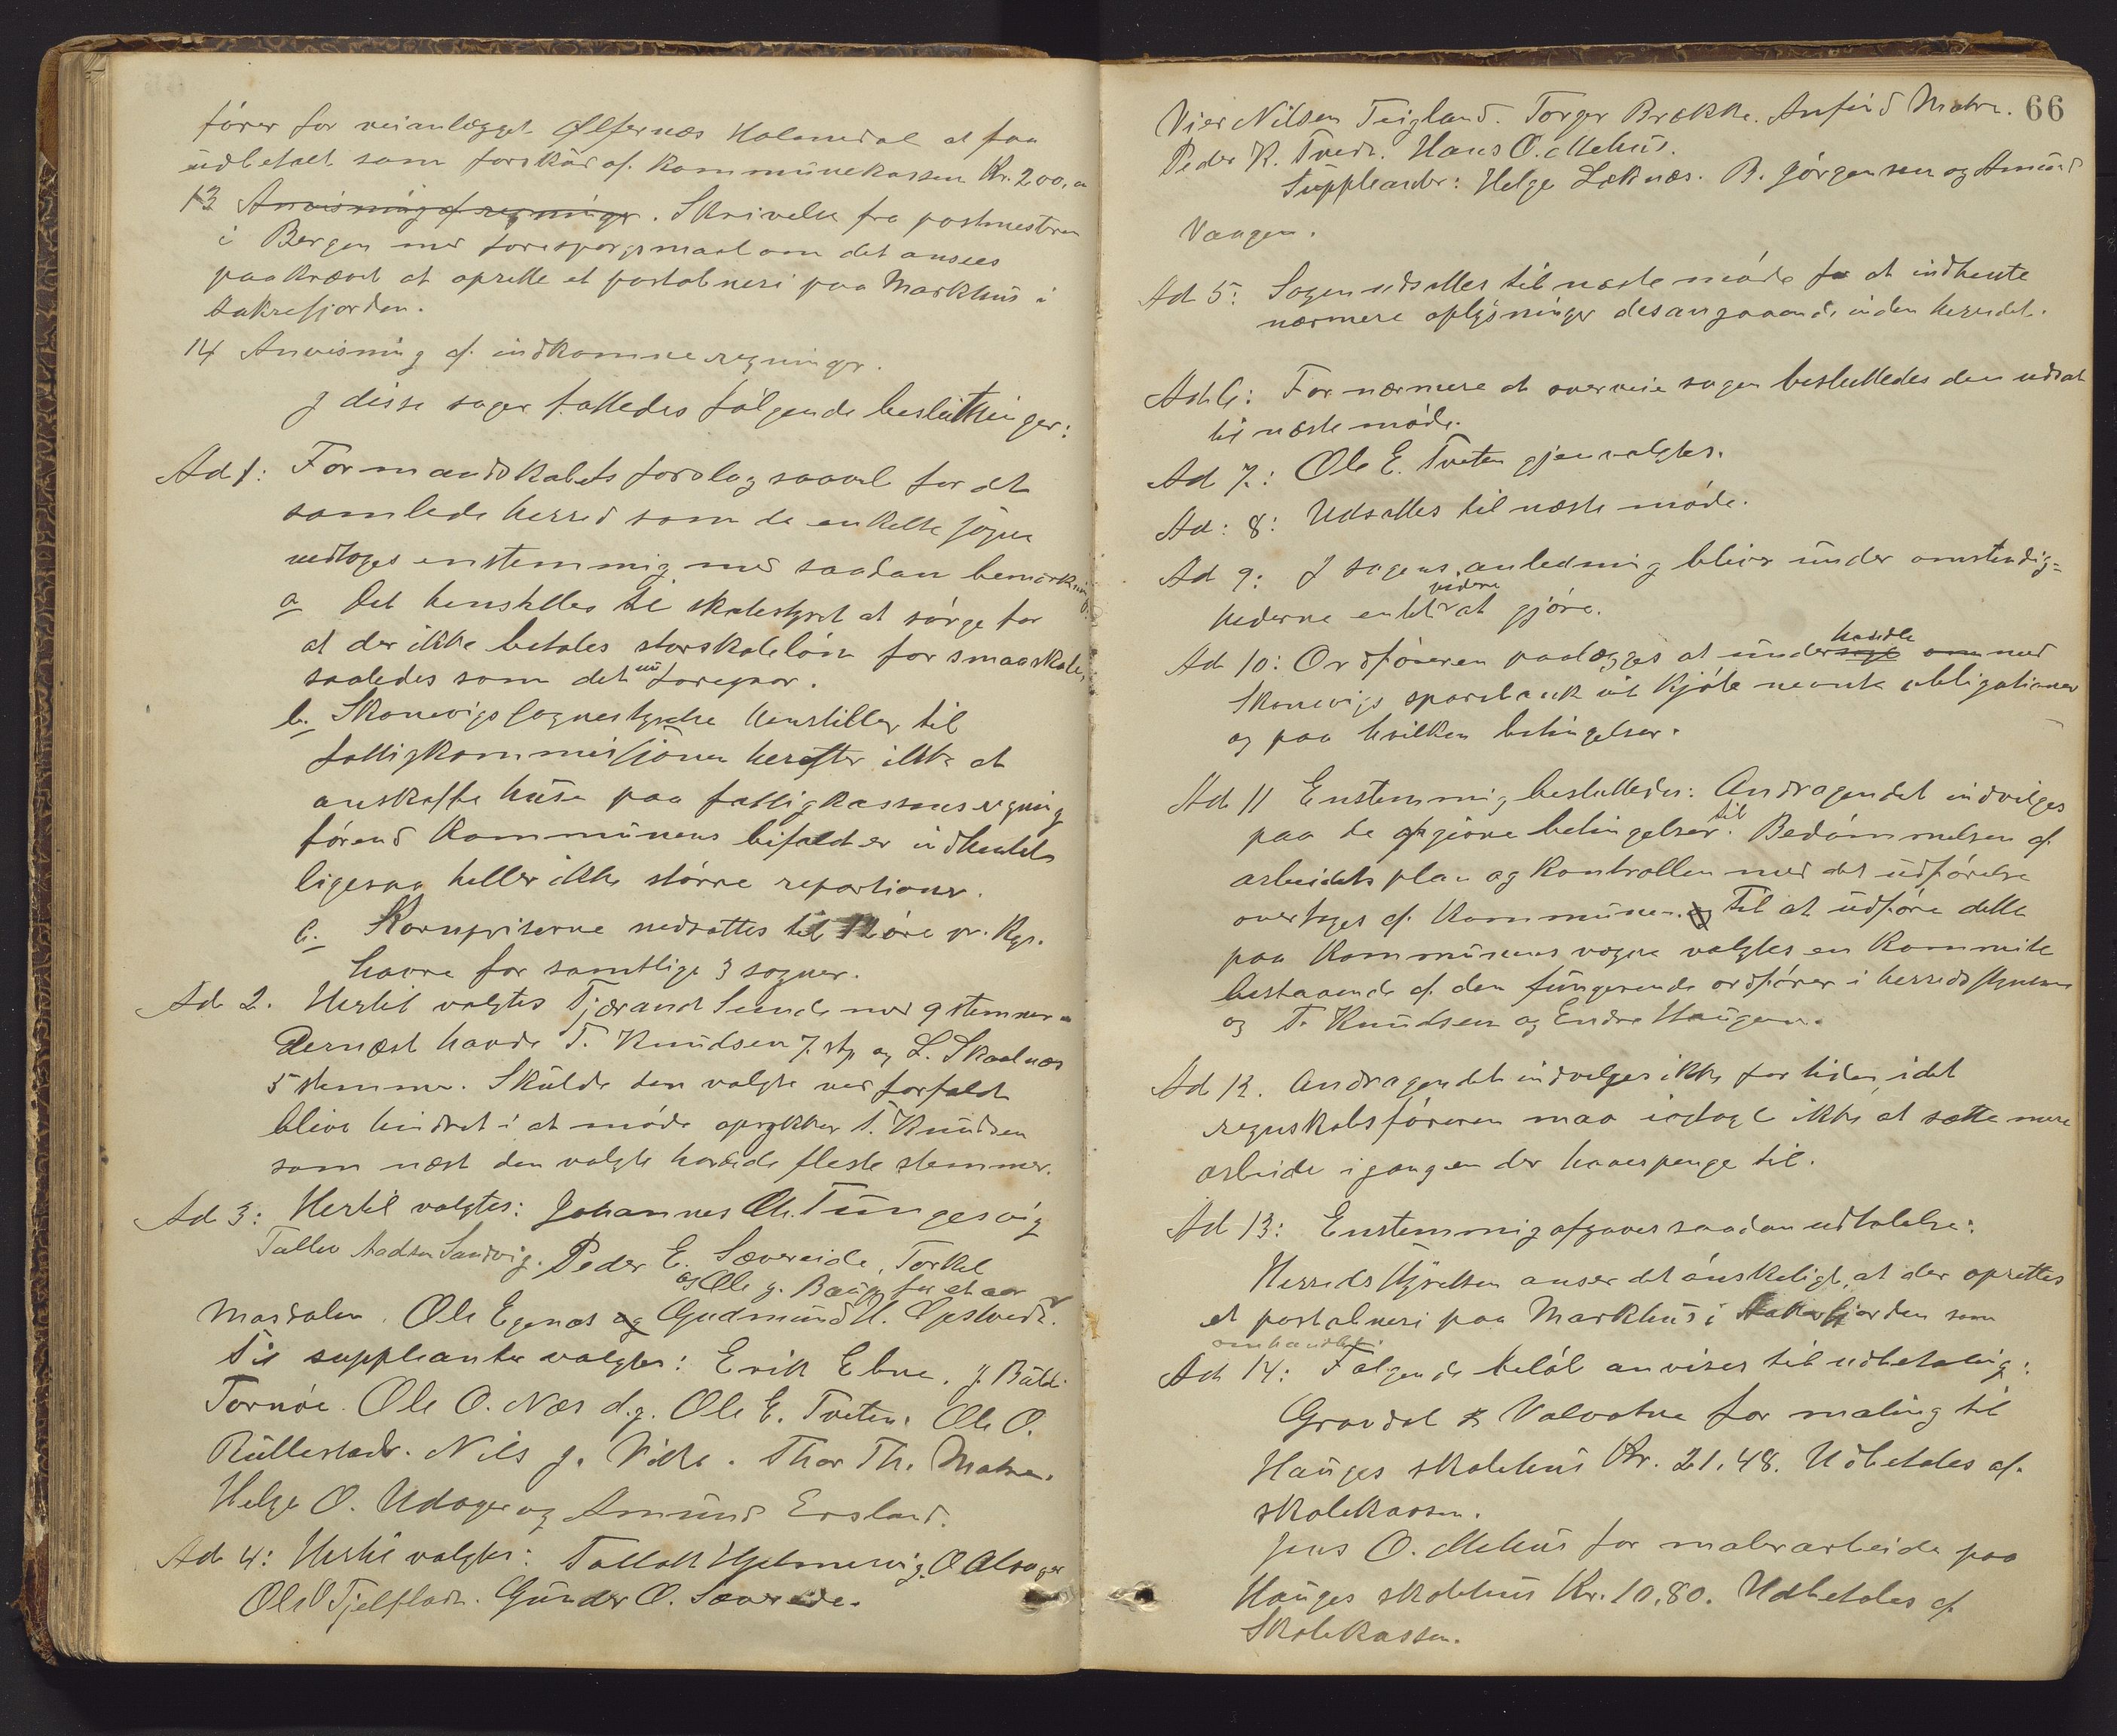 fører for veianlægget Ølfernæs Holmedal at faa
udbetalt som forskud af kommunekassen Kr. 200,00
13 Anvisning af regninger. Skrivelse fra postmesteren
i Bergen med forespørgsmaal om det ansees
paakrævet at oprette et postaabneri paa Markhus i
Aakrefjorden.
14 Anvisning af indkomne regninger.
I disse sager fattedes følgende beslutninger:
Ad 1: Formandskabets forslag saavel for det
samlede herred som de enkelte sogne
vedtoges enstemmig med saadan bemærkning:
a Det henstilles til skolestyret at sørge for
at der ikke betales storskoleløn for smaaskole,
saaledes som det nu foregaar.
b. Skonevigs sognestyrelse henstiller til
fattigkommissionen herefter ikke at
anskaffe huse paa fattigkassens regning
førend kommunens bifald er indhentet
ligesaa heller ikke større reparationer.
c. Kornpriserne nedsattes til 12 øre pr. Kgr.
havre for samtlige 3 sogner.
Ad 2. Hertil valgtes Tjærand Sunde med 9 stemmer.
Dernæst havde T. Knudsen 7 st. og L. Skaalnæs
5 stemmer. Skulde den valgte ved forfald
blive hindret i at møde oprykker T. Knudsen
som næst den valgte havde de fleste stemmer.
Ad 3: Hertil valgtes: Johannes Chr. Tungesvig
Tallev Aadsen Sandvig. Peder E. Sævereide, Torkel
og Ole J. Baugs for et aar
Masdalen. Ole Egenæs og Gudmund H. Opstvedt.
Til suppleanter valgtes: Erik Ebne. J. Buld.
Tornøe. Ole O. Næs d.y. Ole E. Tveten. Ole O.
Rullestad. Nils J. Vika. Thor Th. Matre.
Helge O. Udaager og Amund Ersland.
Ad 4: Hertil valgtes: Tallak Hjelmervig. O Alsager
Ole O Tjelfladt. Gunder O. Sævereide.
66
Vier Nilsen Teigland. Torger Brække. Anfind Matre.
Peder K. Tvedt. Hans O. Mehus.
Suppleander: Helge Løknæs. B. Jørgensen og Amund
Vaagen.
Ad 5: Sagen udsættes til næste møde for at indhente
nærmere oplysninger desangaaende inden herredet.
Ad 6: For nærmere at overveie sagen besluttedes den udsat
til næste møde.
Ad 7: Ole E. Tveten gjenvalgtes.
Ad: 8: Udsattes til næste møde.
Ad 9: I sagens anledning bliver under omstendig=
videre
hederne intet at gjøre.
handle
Ad 10: Ordføreren paalægges at undersøge om med
Skonevigs sparebank vil kjøbe nevnte obligationer
og paa hvilken betingelser.
Ad 11 Enstemmig besluttedes: Andragendet indvilges
til
paa de opgivne betingelser. Bedømmelsen af
arbeidets plan og kontrollen med det udførelse
overtages af kommunen. og Til at udføre dette
paa kommunens vegne valgtes en kommite
bestaaende af den fungerende ordfører i herredsstyrelsen
og T. Knudsen og Endre Haugen.
Ad 12. Andragendet indvilges ikke for tiden, idet
regnskabsføreren maa iagtage ikke at sætte mere
arbeide i gang en der haves penge til.
Ad 13: Enstemmig afgaves saadan udtalelse:
Herredsstyrelsen anser det ønskeligt, at der oprettes
et postabneri paa Markhus i Aakrefjorden som
omhandlet.
Ad 14: Følgende beløb anvises til udbetaling:
Gravdal & Valvatne for maling til
Hauges skolehus Kr. 21,48. Udbetales af
skolekassen.
Jens O. Mehus for malerarbeide paa
Hauges skolehus Kr. 10,80. Udbetales af
Skolekassen.